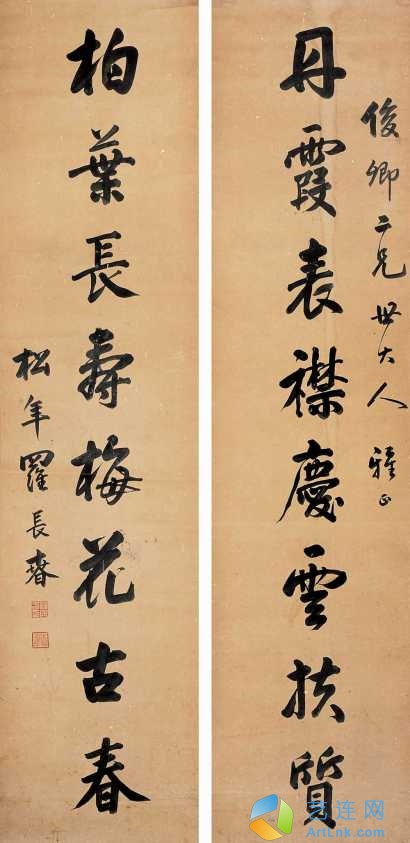 俊卿二兄世大人雅正
丹霞表襟慶雲扶質
柏葉長壽梅花古春
松年羅長𧝬
艺连网
ArtLnk.com